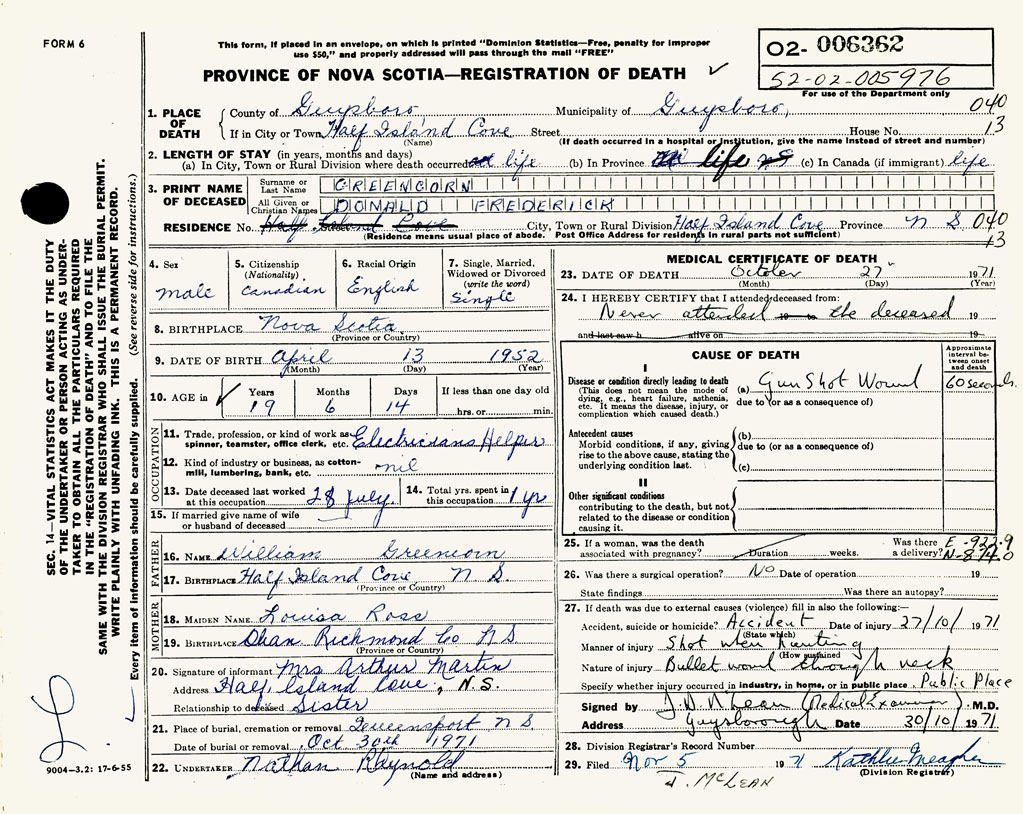 FORM 6
This form, if placed in an envelope, on which is printed "Dominion Statistics—Free, penalty for improper
use $50," and properly addressed will pass through the mail "FREE"
PROVINCE OF NOVA SCOTIA—REGISTRATION OF DEATH ✓
02- 006362
52-02-005976
For use of the Department only
1. PLACE OF DEATH County of Guysboro Municipality of Guysboro, 040
If in City or Town Half Island Cove Street House No. 13
(Name) (If death occurred in a hospital or institution, give the name instead of street and number)
2. LENGTH OF STAY (in years, months and days)
(a) In City, Town or Rural Division where death occurred life (b) In Province life (c) In Canada (if immigrant) life
3. PRINT NAME OF DECEASED Surname or Last Name GREENCORN
All Given or Christian Names DONALD FREDERICK
RESIDENCE No. Half Island Cove Street City, Town or Rural Division Half Island Cove Province N S 040
(Residence means usual place of abode. Post Office Address for residents in rural parts not sufficient) 13
4. Sex male
5. Citizenship (Nationality) Canadian
6. Racial Origin English
7. Single, Married, Widowed or Divorced (write the word) Single
8. BIRTHPLACE Nova Scotia
(Province or Country)
9. DATE OF BIRTH April 13 1952
(Month) (Day) (Year)
10. AGE in ✓ Years 19 Months 6 Days 14 If less than one day old hrs. or min.
OCCUPATION
11. Trade, profession, or kind of work as spinner, teamster, office clerk, etc. Electricians Helper
12. Kind of industry or business, as cotton-mill, lumbering, bank, etc. nil
13. Date deceased last worked at this occupation 28 July 14. Total yrs. spent in this occupation 1 yr
15. If married give name of wife or husband of deceased
FATHER
16. NAME William Greencorn
17. BIRTHPLACE Half Island Cove, N S.
(Province or Country)
MOTHER
18. MAIDEN NAME Louisa Ross
19. BIRTHPLACE Richmond Co N.S.
(Province or Country)
20. Signature of informant Mrs Arthur Martin
Address Half Island Cove, N.S.
Relationship to deceased Sister
21. Place of burial, cremation or removal Queensport N S
Date of burial or removal Oct 30th 1971
22. UNDERTAKER Nathan Raynold
(Name and address)
MEDICAL CERTIFICATE OF DEATH
23. DATE OF DEATH October 27 1971
(Month) (Day) (Year)
24. I HEREBY CERTIFY that I attended deceased from:
Never attended the deceased 19
and last saw h alive on 19
CAUSE OF DEATH
Approximate interval between onset and death
I
Disease or condition directly leading to death (a) Gun Shot Wound 60 seconds.
(This does not mean the mode of dying, e.g., heart failure, asthenia, etc. It means the disease, injury, or complication which caused death.)
due to (or as a consequence of)
Antecedent causes
Morbid conditions, if any, giving rise to the above cause, stating the underlying condition last.
(b)
due to (or as a consequence of)
(c)
II
Other significant conditions
contributing to the death, but not related to the disease or condition causing it.
25. If a woman, was the death associated with pregnancy? Duration weeks. Was there a delivery? E-922.9
N-874.0
26. Was there a surgical operation? No Date of operation 19
State findings Was there an autopsy?
27. If death was due to external causes (violence) fill in also the following:—
Accident, suicide or homicide? Accident Date of injury 27/10/1971
(State which)
Manner of injury Shot when hunting
(How sustained)
Nature of injury Bullet wound through neck
Specify whether injury occurred in industry, in home, or in public place Public Place
Signed by (Medical Examiner) M.D.
Address Guysborough Date 30/10/1971
28. Division Registrar's Record Number
29. Filed Nov 5 1971 Kathleen Meagher
(Division Registrar)
J. McLEAN
SEC. 14—VITAL STATISTICS ACT MAKES IT THE DUTY
OF THE UNDERTAKER OR PERSON ACTING AS UNDER-
TAKER TO OBTAIN ALL THE PARTICULARS REQUIRED
IN THE "REGISTRATION OF DEATH" AND TO FILE THE
SAME WITH THE DIVISION REGISTRAR WHO SHALL ISSUE THE BURIAL PERMIT.
WRITE PLAINLY WITH UNFADING INK. THIS IS A PERMANENT RECORD.
Every item of information should be carefully supplied. (See reverse side for instructions.)
9004-3.2: 17-6-55